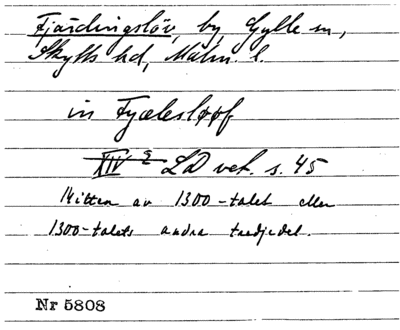 Fjärdingslöv, by, Gylle sn,
Skytts hd, Malm. l.
in Fyælesløff
XIV 2 LD vet. s. 45
Mitten av 1300-talet eller
1300-talets andra tredjedel.
Nr 5808